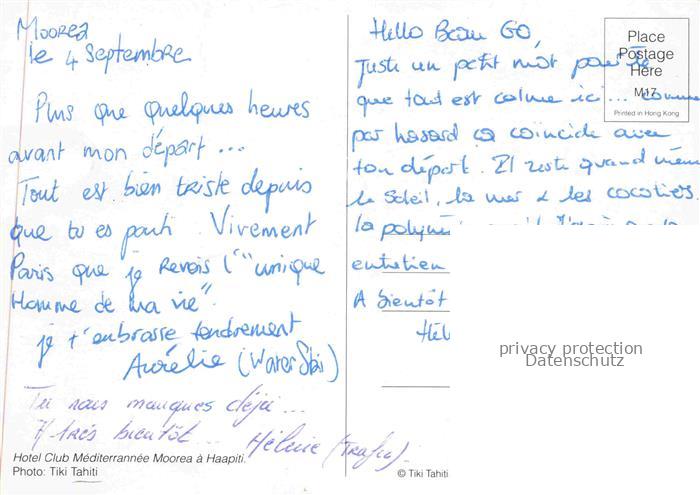 Moorea
le 4 Septembre
Plus que quelques heures
avant mon départ ...
Tout est bien triste depuis
que tu es parti. Vivement
Paris que je revois l'"unique
Homme de ma vie".
je t'embrasse tendrement
Aurélie (Water Ski)
Tu nous manques déjà ...
A très bientôt ... Hélène (Trafic).
Hotel Club Méditerrannée Moorea à Haapiti.
Photo: Tiki Tahiti
Hello Beau GO,
Juste un petit mot pour te
que tout est calme ici ... comme
par hasard ça coïncide avec
ton départ. Il reste quand même
le Soleil, la mer & les cocotiers.
la
entretien
A bientôt
Hél
Place
Postage
Here
M17
Printed in Hong Kong
privacy protection
Datenschutz
© Tiki Tahiti